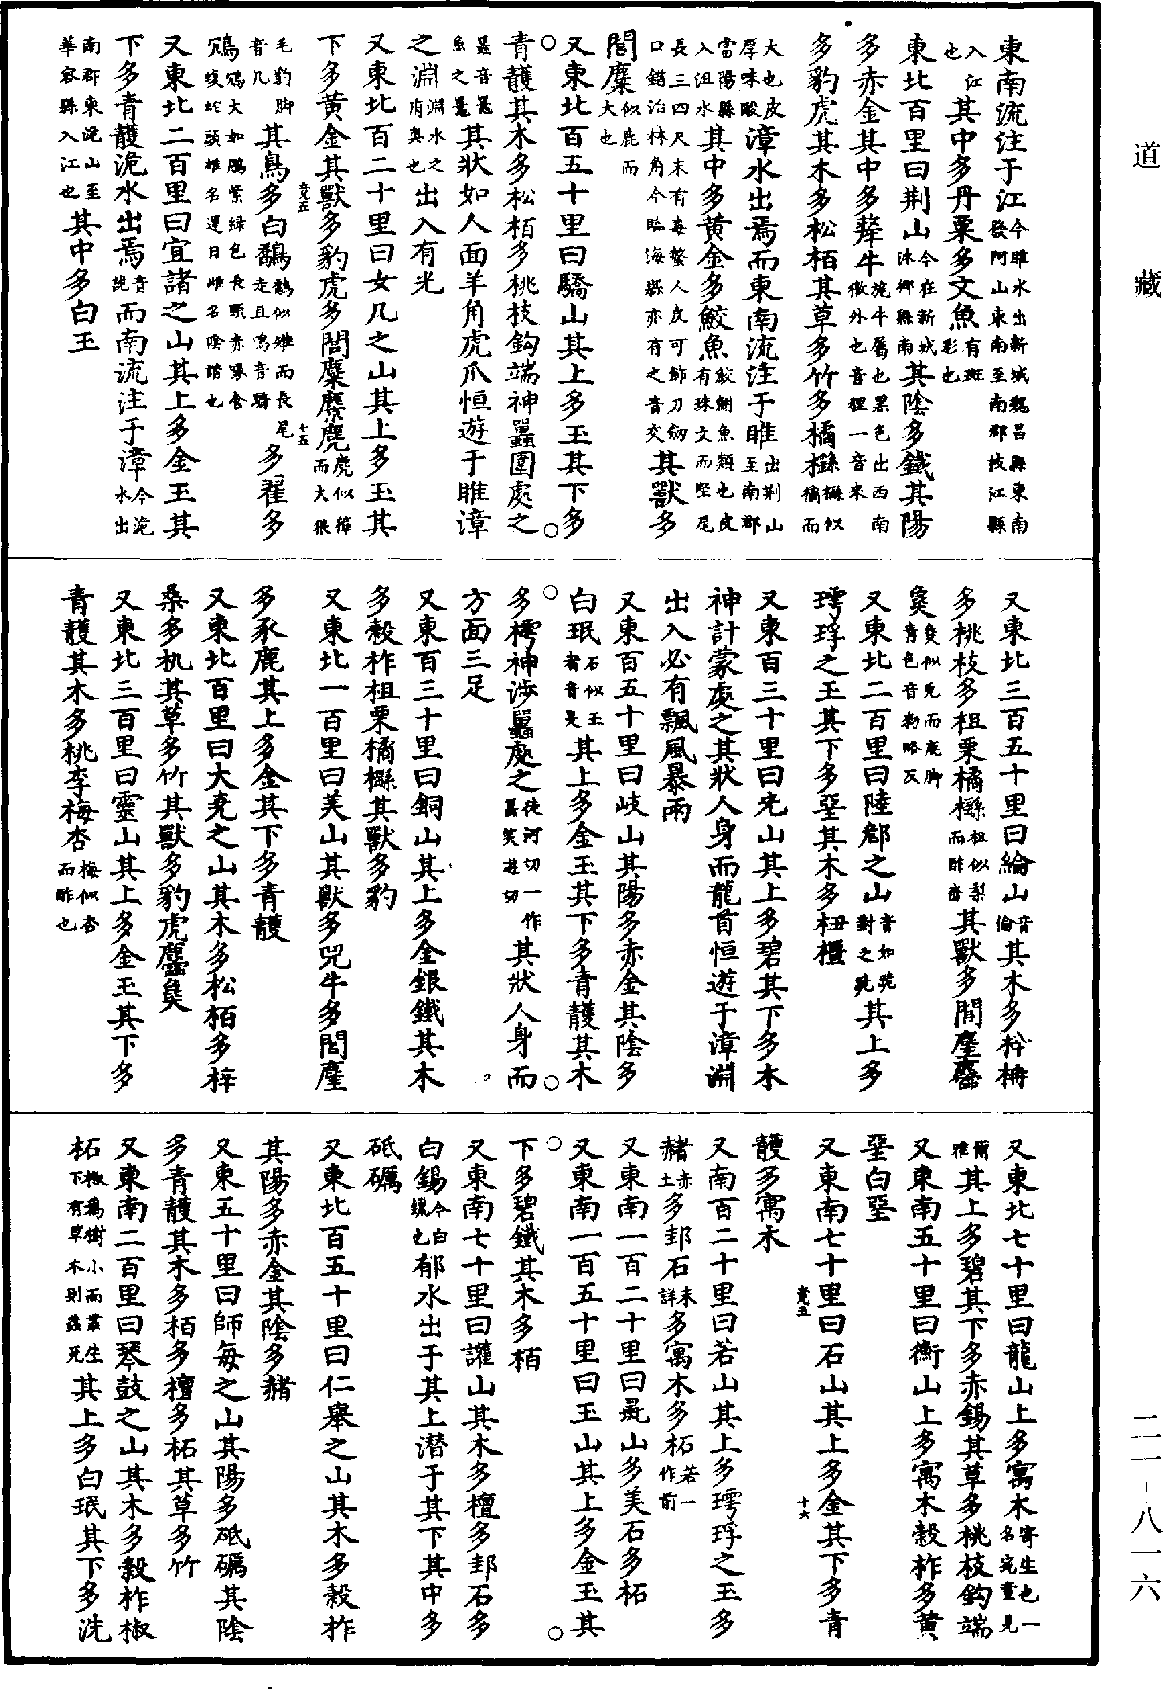 道藏
二一-八一六
東南流注于江今睢水出新城魏昌縣東南發阿山東南至南郡枝江縣
入江也其中多丹粟多文魚有斑彩也
東北百里曰荆山今在新城沭鄉縣南其陰多鐵其陽
多赤金其中多犛牛旄牛屬也黑色出西南徼外也音貍一音來
多豹虎其木多松栢其草多竹多橘櫾櫾似橘而
大也皮厚味酸漳水出焉而東南流注于睢出荆山至南郡
當陽縣入沮水其中多黃金多鮫魚鮫鮒魚類也皮有珠文而堅尾
長三四尺末有毒螫人皮可飾刀劒口錯治材角今臨海縣亦有之音交其獸多
閭麋似鹿而大也
又東北百五十里曰驕山其上多玉其下多
青雘其木多松栢多桃枝鈎端神䰠圍處之
䰠音䰠魚之䰠其狀如人面羊角虎爪恒遊于睢漳
之淵淵水之府奧也出入有光
又東北百二十里曰女几之山其上多玉其
下多黃金其獸多豹虎多閭麋麖麂麂似獐而大猥
毛豹脚音几其鳥多白鷮鷮似雉而長尾走且鳴音驕多翟多
鴆鴆大如鵰紫緑色長頸赤喙食蝮蛇頭雄名運日雌名陰諧也
又東北二百里曰宜諸之山其上多金玉其
下多青雘洈水出焉音詭而南流注于漳今洈水出
南郡東洈山至華容縣入江也其中多白玉
又東北三百五十里曰綸山音倫其木多梓枏
多桃枝多柤栗橘櫾柤似梨而酢濇其獸多閭麈麢
㚟㚟似兔而鹿脚青色音勑略反
又東北二百里曰陸䣀之山音如跪對之跪其上多
㻬琈之玉其下多堊其木多杻橿
又東百三十里曰光山其上多碧其下多木
神計蒙處之其狀人身而龍首恒遊于漳淵
出入必有飄風暴雨
又東百五十里曰岐山其陽多赤金其陰多
白珉石似玉者音旻其上多金玉其下多青雘其木
多樗神涉䰠處之徒河切一作䰠笑遊切其狀人身而
方面三足
又東百三十里曰銅山其上多金銀鐵其木
多榖柞柤栗橘櫾其獸多豹
又東北一百里曰美山其獸多兕牛多閭麈
多豕鹿其上多金其下多青雘
又東北百里曰大堯之山其木多松栢多梓
桑多机其草多竹其獸多豹虎麢㚟
又東北三百里曰靈山其上多金玉其下多
青雘其木多桃李梅杏梅似杏而酢也
又東北七十里曰龍山上多寓木寄生也一名宛童見
爾雅其上多碧其下多赤錫其草多桃枝鈎端
又東南五十里曰衡山上多寓木榖柞多黃
堊白堊
又東南七十里曰石山其上多金其下多青
雘多寓木
又南百二十里曰若山其上多㻬琈之玉多
赭赤土多邽石未詳多寓木多柘若一作前
又東南一百二十里曰彘山多美石多柘
又東南一百五十里曰玉山其上多金玉其
下多碧鐵其木多栢
又東南七十里曰讙山其木多檀多邽石多
白錫今白鑞也郁水出于其上潜于其下其中多
砥礪
又東北百五十里曰仁舉之山其木多榖柞
其陽多赤金其陰多赭
又東五十里曰師每之山其陽多砥礪其陰
多青雘其木多栢多檀多柘其草多竹
又東南二百里曰琴鼓之山其木多榖柞椒
柘椒爲樹小而叢生下有草木則蠚死其上多白珉其下多洗